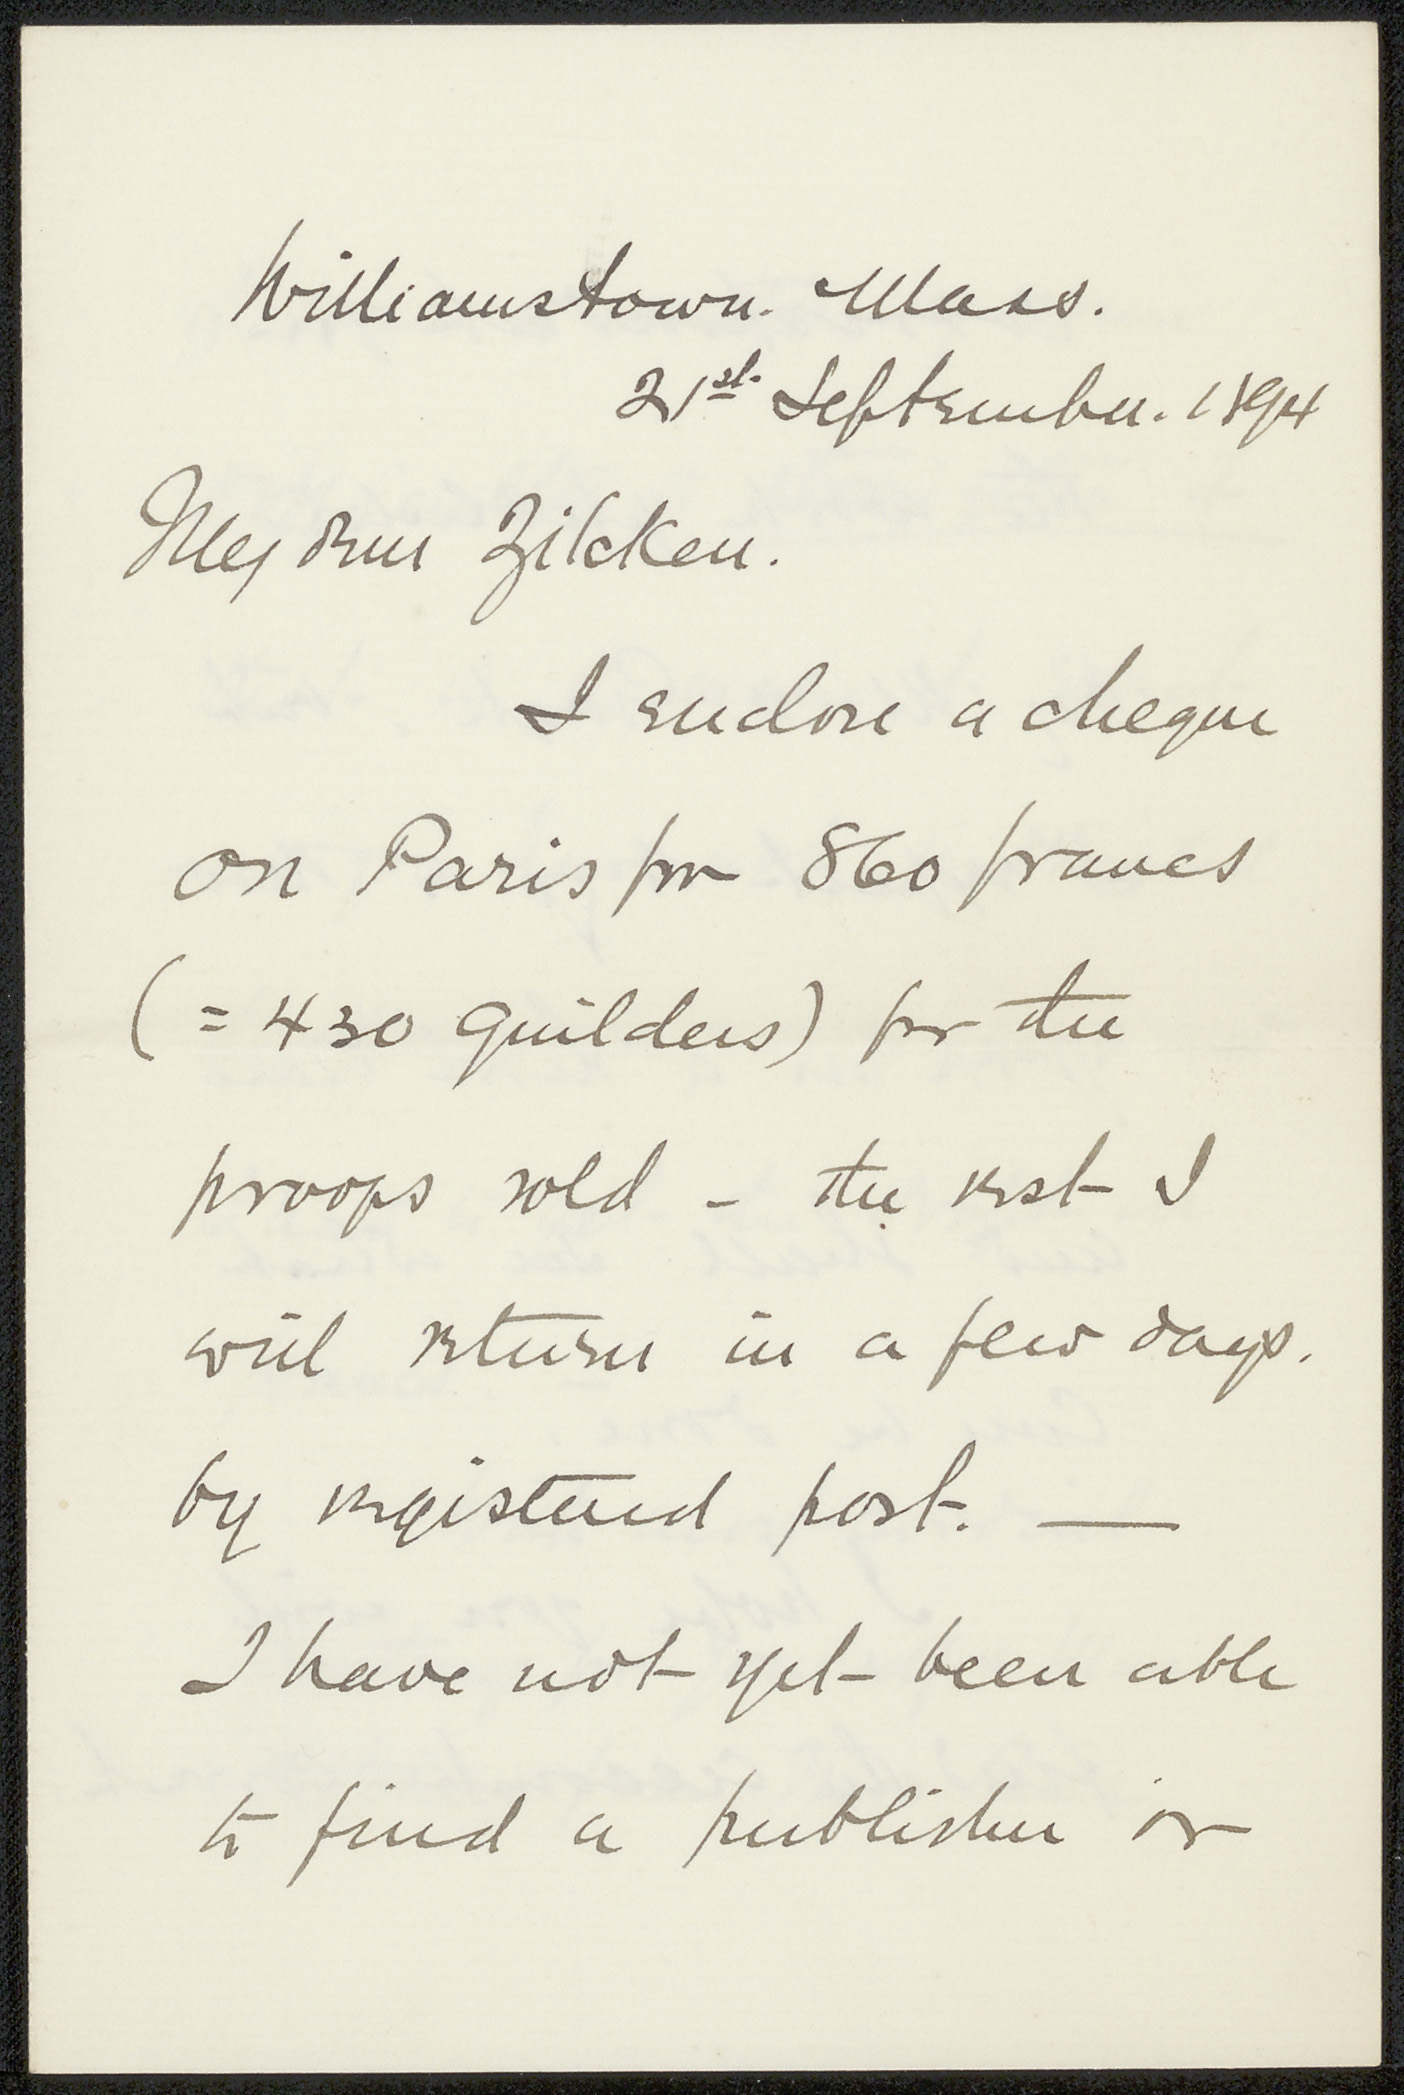 Williamstown. Mass.
21st. September. 1894
My dear Zilcken.
I enclose a cheque
on Paris for 860 francs
(= 430 guilders) for the
proofs sold - the rest I
will return in a few days.
by registered post. —
I have not yet been able
to find a publisher or